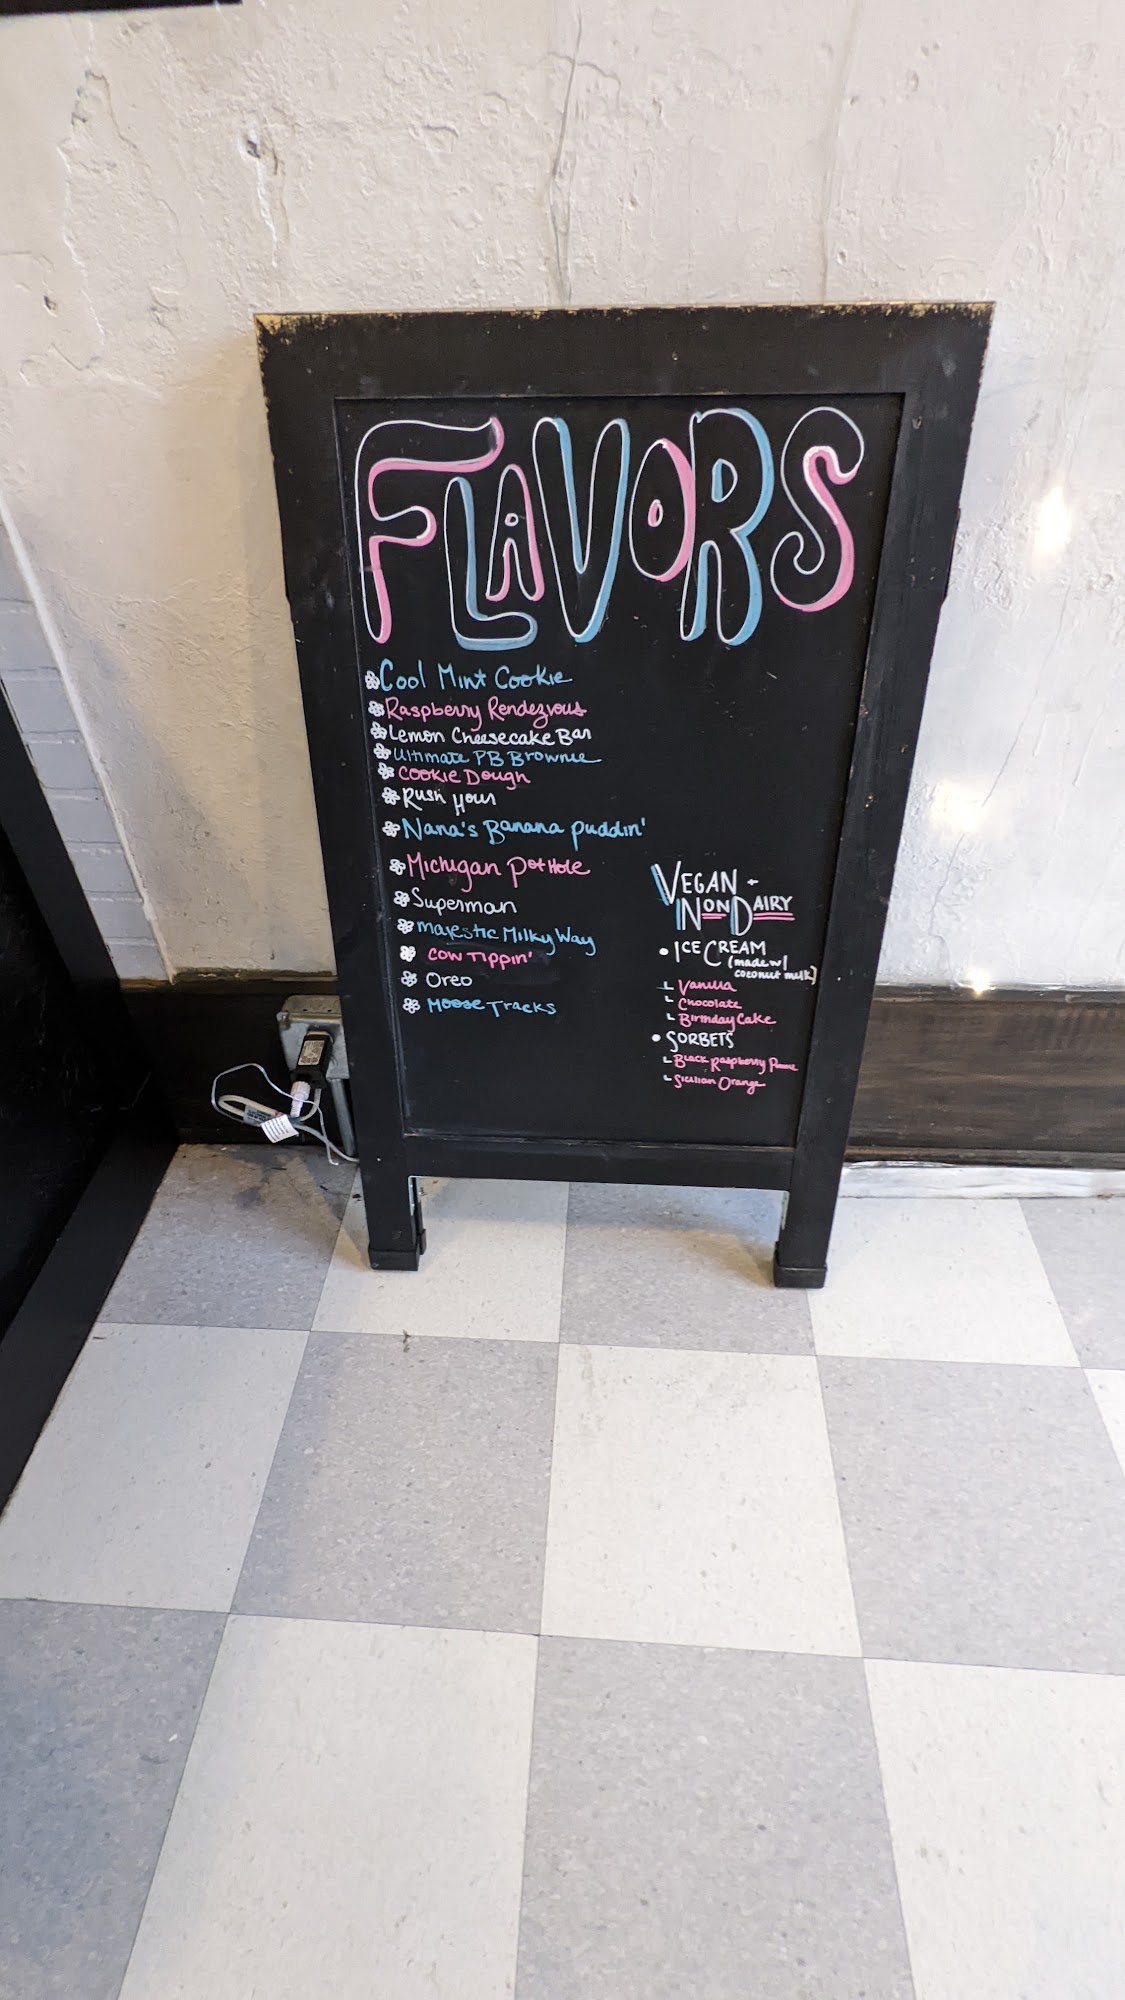 FLAVORS
Cool Mint Cookie
Raspberry Rendezvous
Lemon Cheesecake Bar
Ultimate PB Brownie
Cookie Dough
Rush Hour
Nana's Banana Puddin'
Michigan Pot Hole
Superman
Majestic Milky Way
Cow Tippin'
Oreo
Moose Tracks
VEGAN +
NONDAIRY
ICE CREAM
(made w/
coconut milk)
Vanilla
Chocolate
Birthday Cake
SORBETS
Black Raspberry
Sicilian Orange